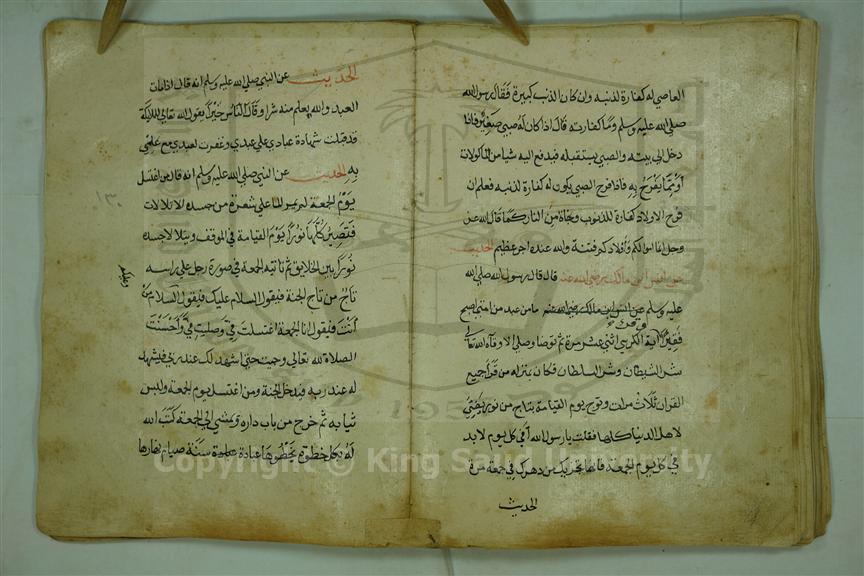 العاصي له كفارة لذنبه وان كان الذنب كبيرة فقال رسول الله
صلي الله عليه وسلم وما كفارته قال اذا كان له صبي صغير فاذا
دخل الي بيته والصبي يستقبله فيدفع اليه شيا من الماكولات
او مما يفرح به فاذا فرح الصبي يكون له كفارة لذنبه فعلم ان
فرح الاولاد كفارة للذنوب ونجاة من النار كما قال الله عز
وجل انما اموالكم واولادكم فتنة والله عنده اجر عظيم الحديث
عن انس ابن مالك رضي الله عنه قال قال رسول الله صلي الله
عليه وسلم عن انس ابن مالك رضي الله عنه ما من عبد من امتي اصبح
اية الكرسي اثني عشر مرة ثم توضا وصلي الا وقاه الله تعالي
شر الشيطان وشر السلطان فكان بمنزلة من قرا جميع
القران ثلاث مرات وتوج يوم القيامة بتاج من نور يضي
لاهل الدنيا كلها فقلت يا رسول الله افي كل يوم لا بد
في كل يوم الجمعة فانها تجزيك من دهرك في جمعة مرة
الحديث
الحديث عن النبي صلي الله عليه وسلم انه قال اذا مات
العبد والله يعلم منه شرا وقال الناس خيرا يقول الله تعالي للملائكة
قد قبلت شهادة عبادي علي عبدي وغفرت لعبدي مع علمي
به الحديث عن النبي صلي الله عليه وسلم انه قال من اغتسل
يوم الجمعة لم يمر الماء علي شعرة من جسده الا تلالات
فتصير كلها نورا يوم القيامة في الموقف ويتلالا جسده
نورا بين الخلايق ثم تاتيه الجمعة في صورة رجل علي راسه
تاج من تاج الجنة فيقول السلام عليك فيقول السلام من
وعليكم
انت فيقول انا الجمعة اغتسلت في وصليت في واحسنت
الصلاة لله تعالي وجيت حتي اشهد لك عند ربي فيشهد
له عند ربه فيدخل الجنة ومن اغتسل يوم الجمعة ولبس
ثيابه ثم خرج من باب داره ويمشي الي الجمعة كتب الله
له بكل خطوة يخطوها عبادة سنة صيام نهارها
١٣٠
Copyright © King Saud University
195